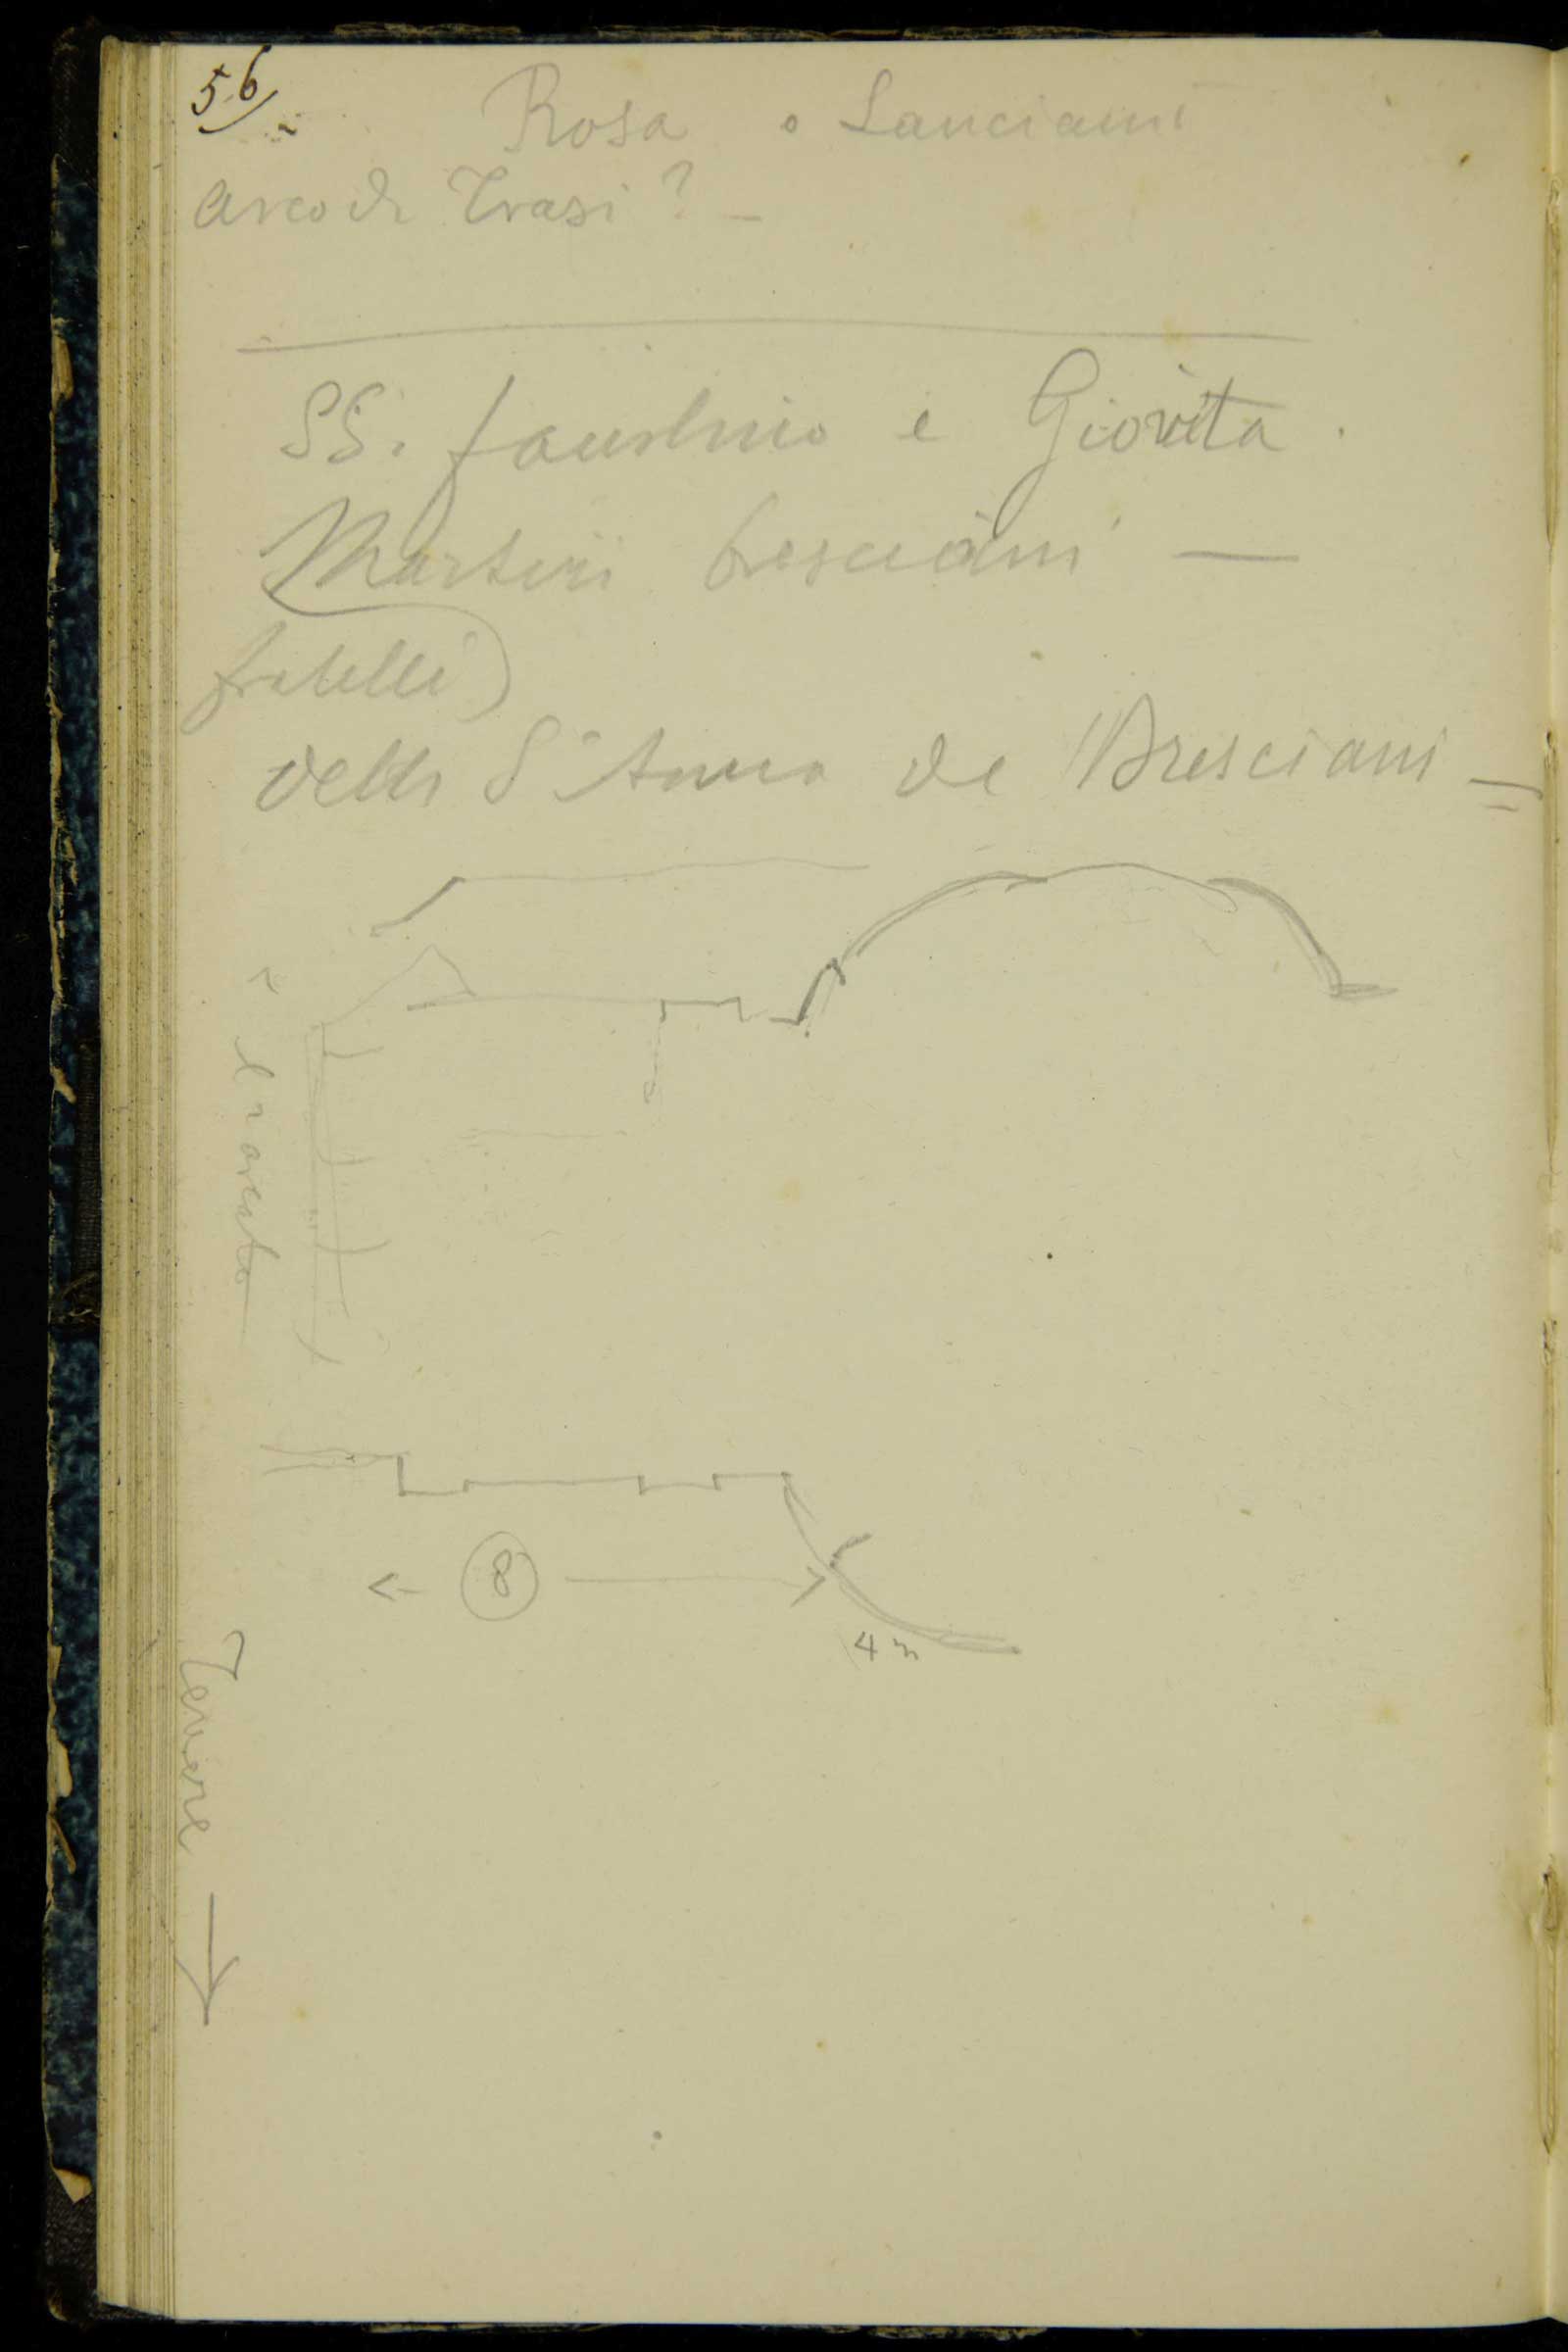 56
Rosa o Lanciani
arco di Trasi? –
SS. Faustino e Giovita.
Martiri bresciani —
fratelli)
detti S Anna de Bresciani =
8
4 m
Tevere